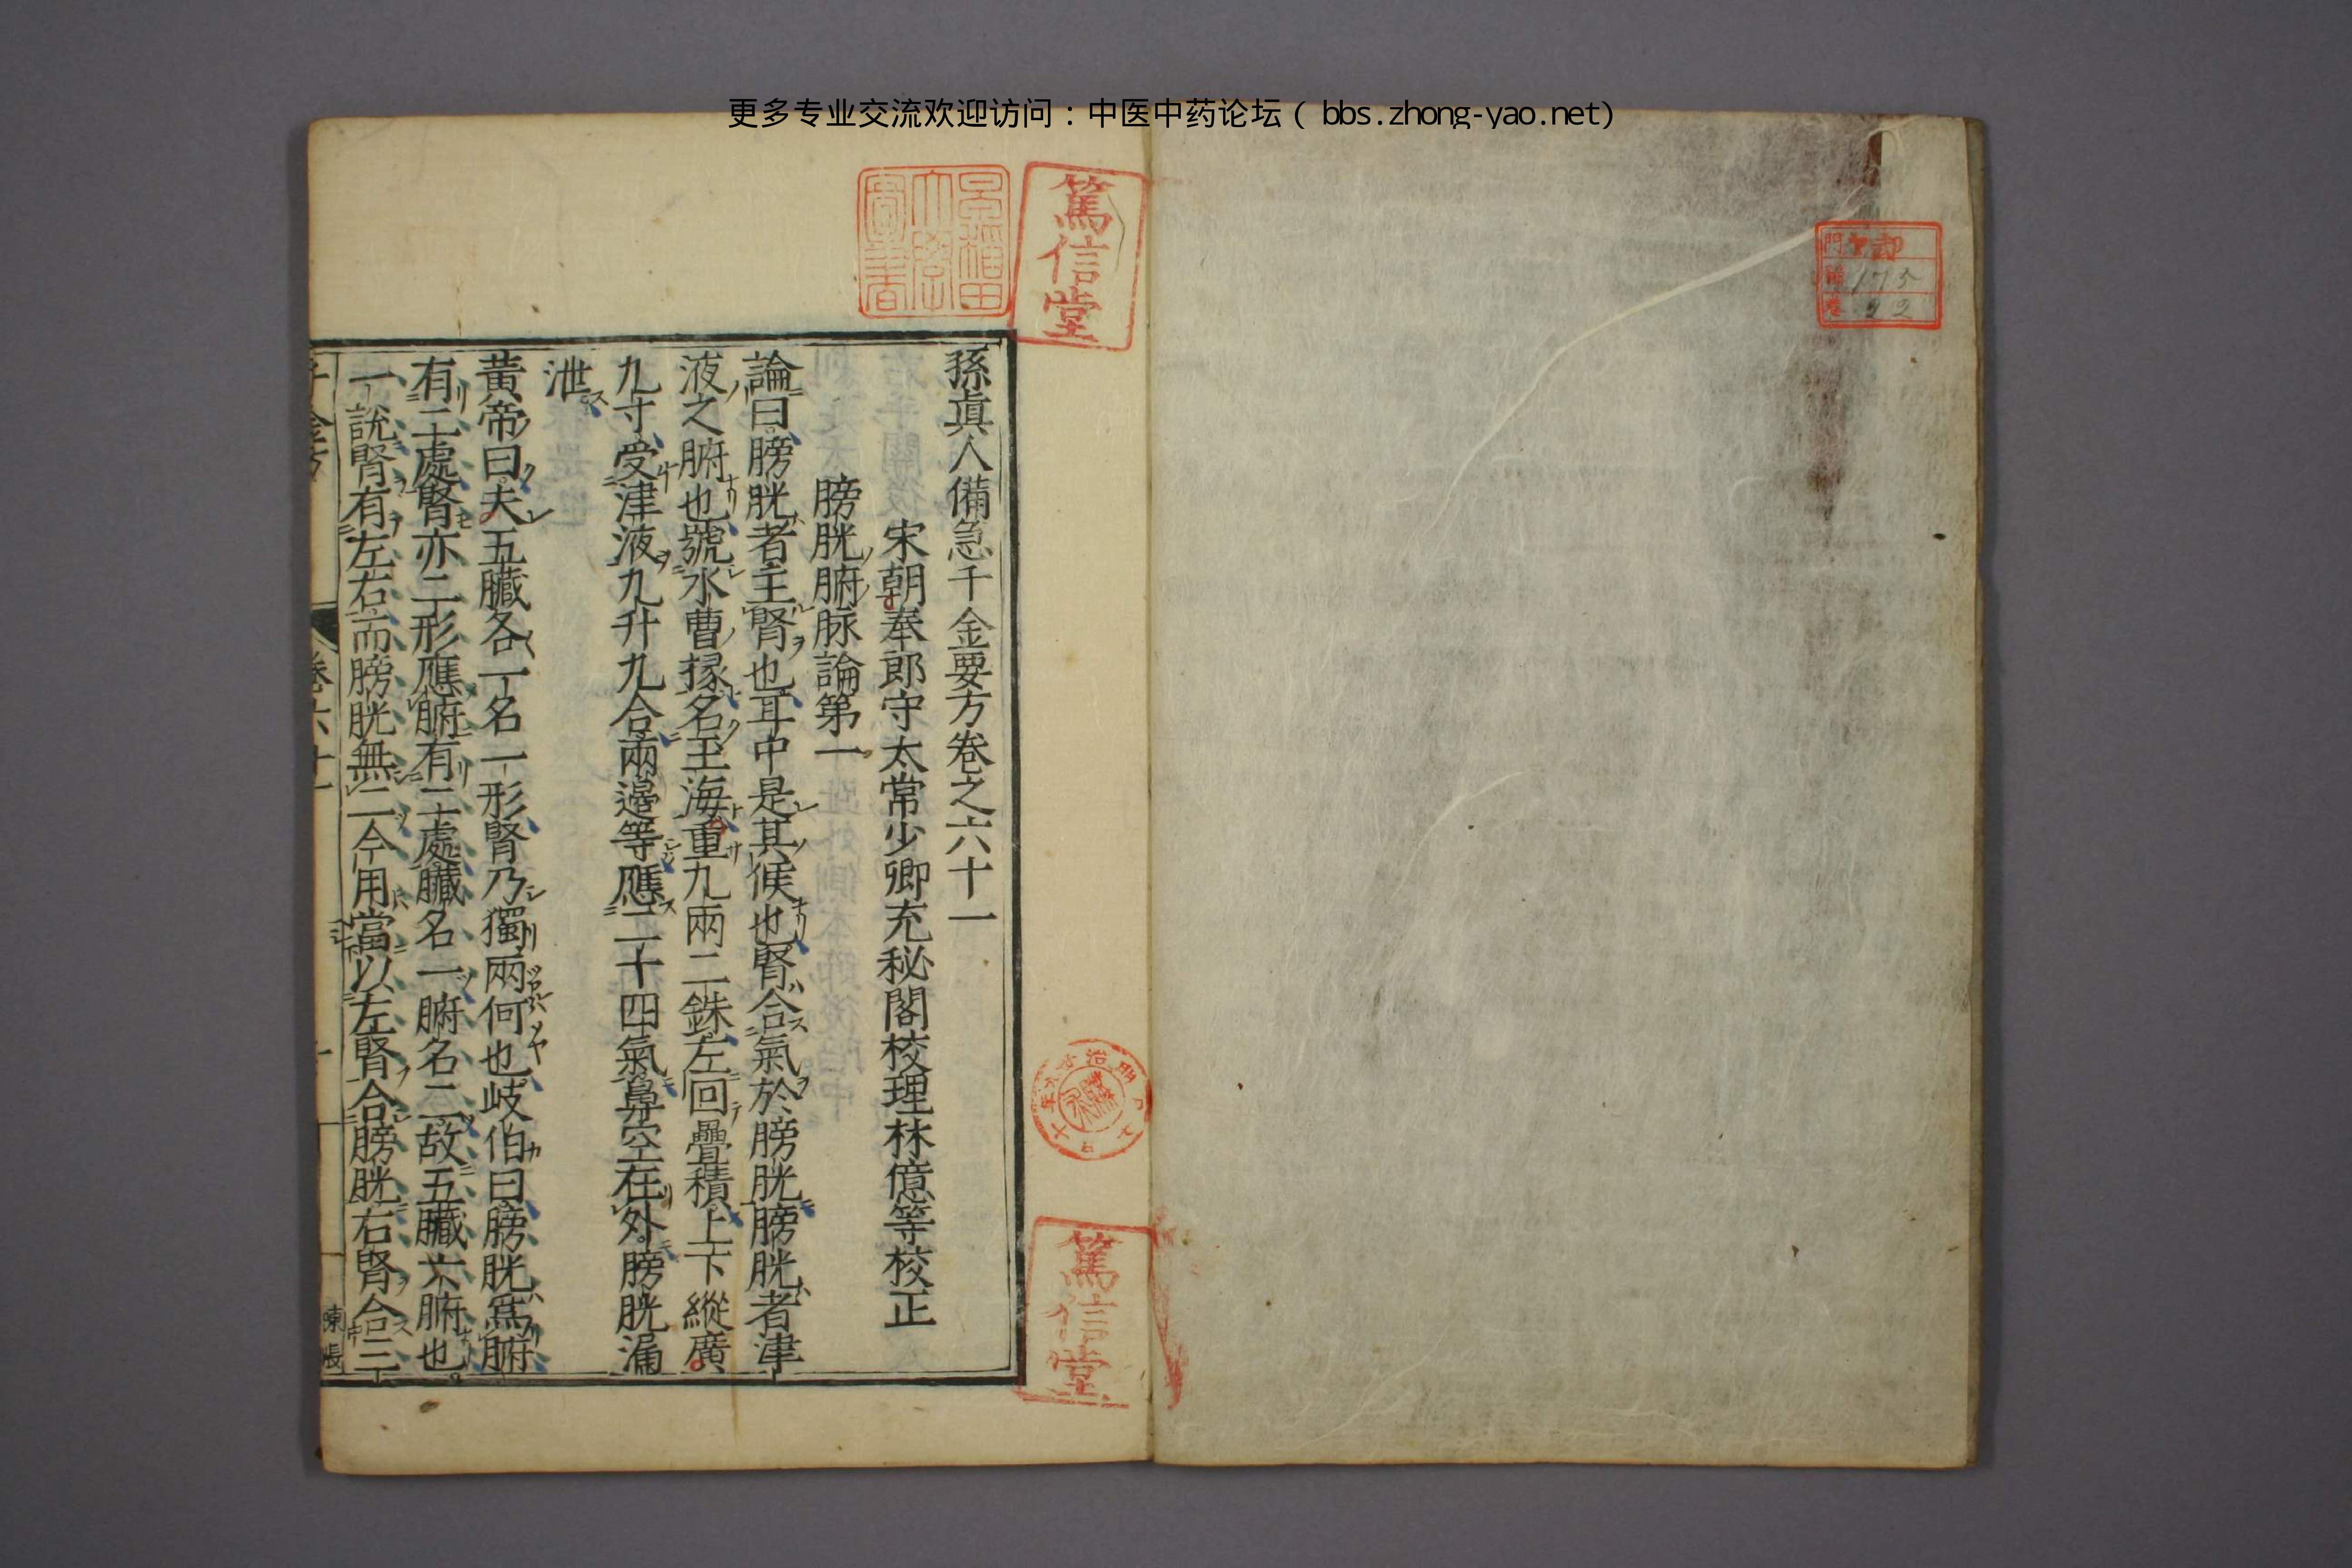 更多专业交流欢迎访问：中医中药论坛（ bbs.zhong-yao.net）
門 ヤ部
175
22
篤信堂
早稲田大學圖書
孫眞人備急千金要方卷之六十一
宋朝奉郎守太常少卿充秘閣校理林億等校正
膀胱腑脉論第一
論曰膀胱者主腎也耳中是其候也腎合氣於膀胱膀胱者津
液之腑也號水曹掾名玉海重九兩二銖左回疊積上下縱廣
九寸受津液九升九合兩邊等應二十四氣鼻空在外膀胱漏
泄
黃帝曰夫五臟各一名一形腎乃獨兩何也岐伯曰膀胱爲腑
有二處腎亦二形應腑有二處臟名一腑名二故五臟六腑也
一說腎有左右而膀胱無二今用當以左腎合膀胱右腎合三
千金方
卷六十一
篤信堂